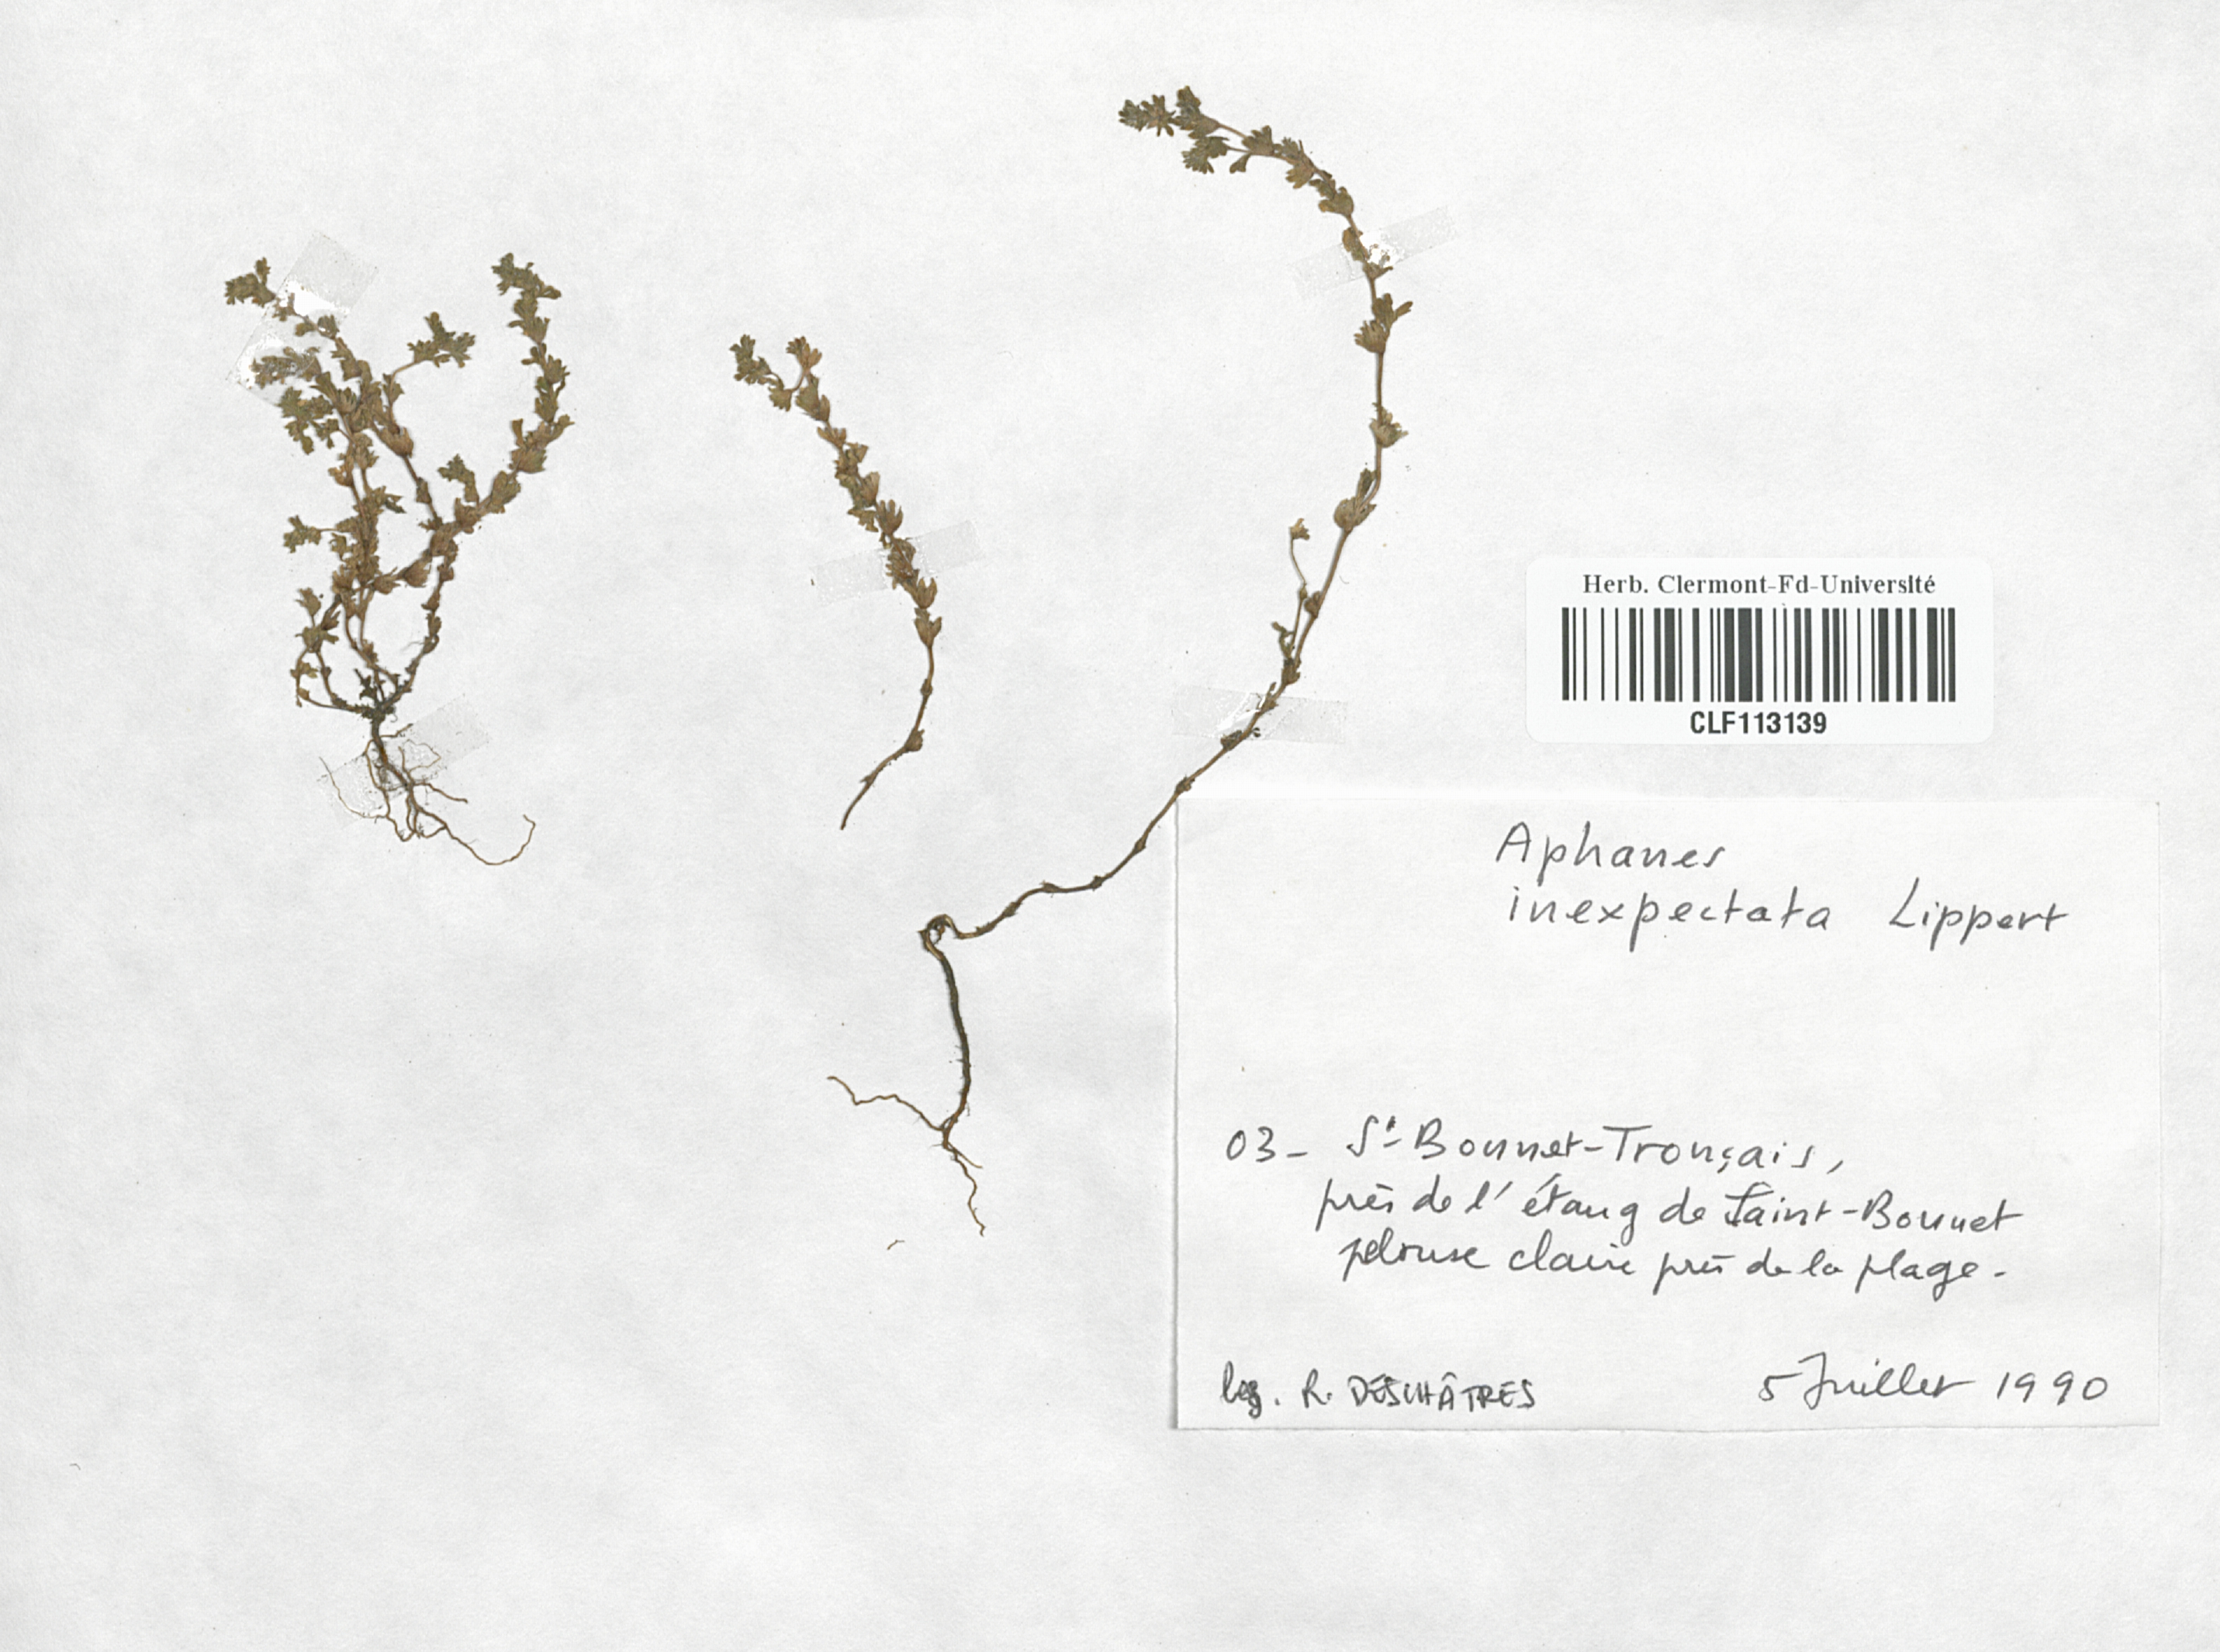 Herb. Clermont-Fd-Université
CLF113139
Aphanes
inexpectata Lippert
03- St-Bonnet-Tronçais,
près de l'étang de Saint-Bonnet
pelouse claire près de la plage.
leg. R. DESCHÂTRES
5 Juillet 1990